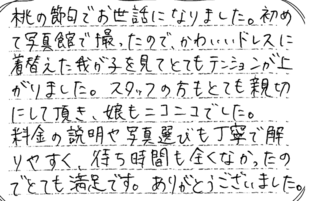 桃の節句でお世話になりました。初め
て写真館で撮ったので、かわいいドレスに
着替えた我が子を見てとてもテンションが上
がりました。スタッフの方もとても親切
にして頂き、娘もニコニコでした。
料金の説明や写真選びも丁寧で解
りやすく、待ち時間も全くなかったの
でとても満足です。ありがとうございました。